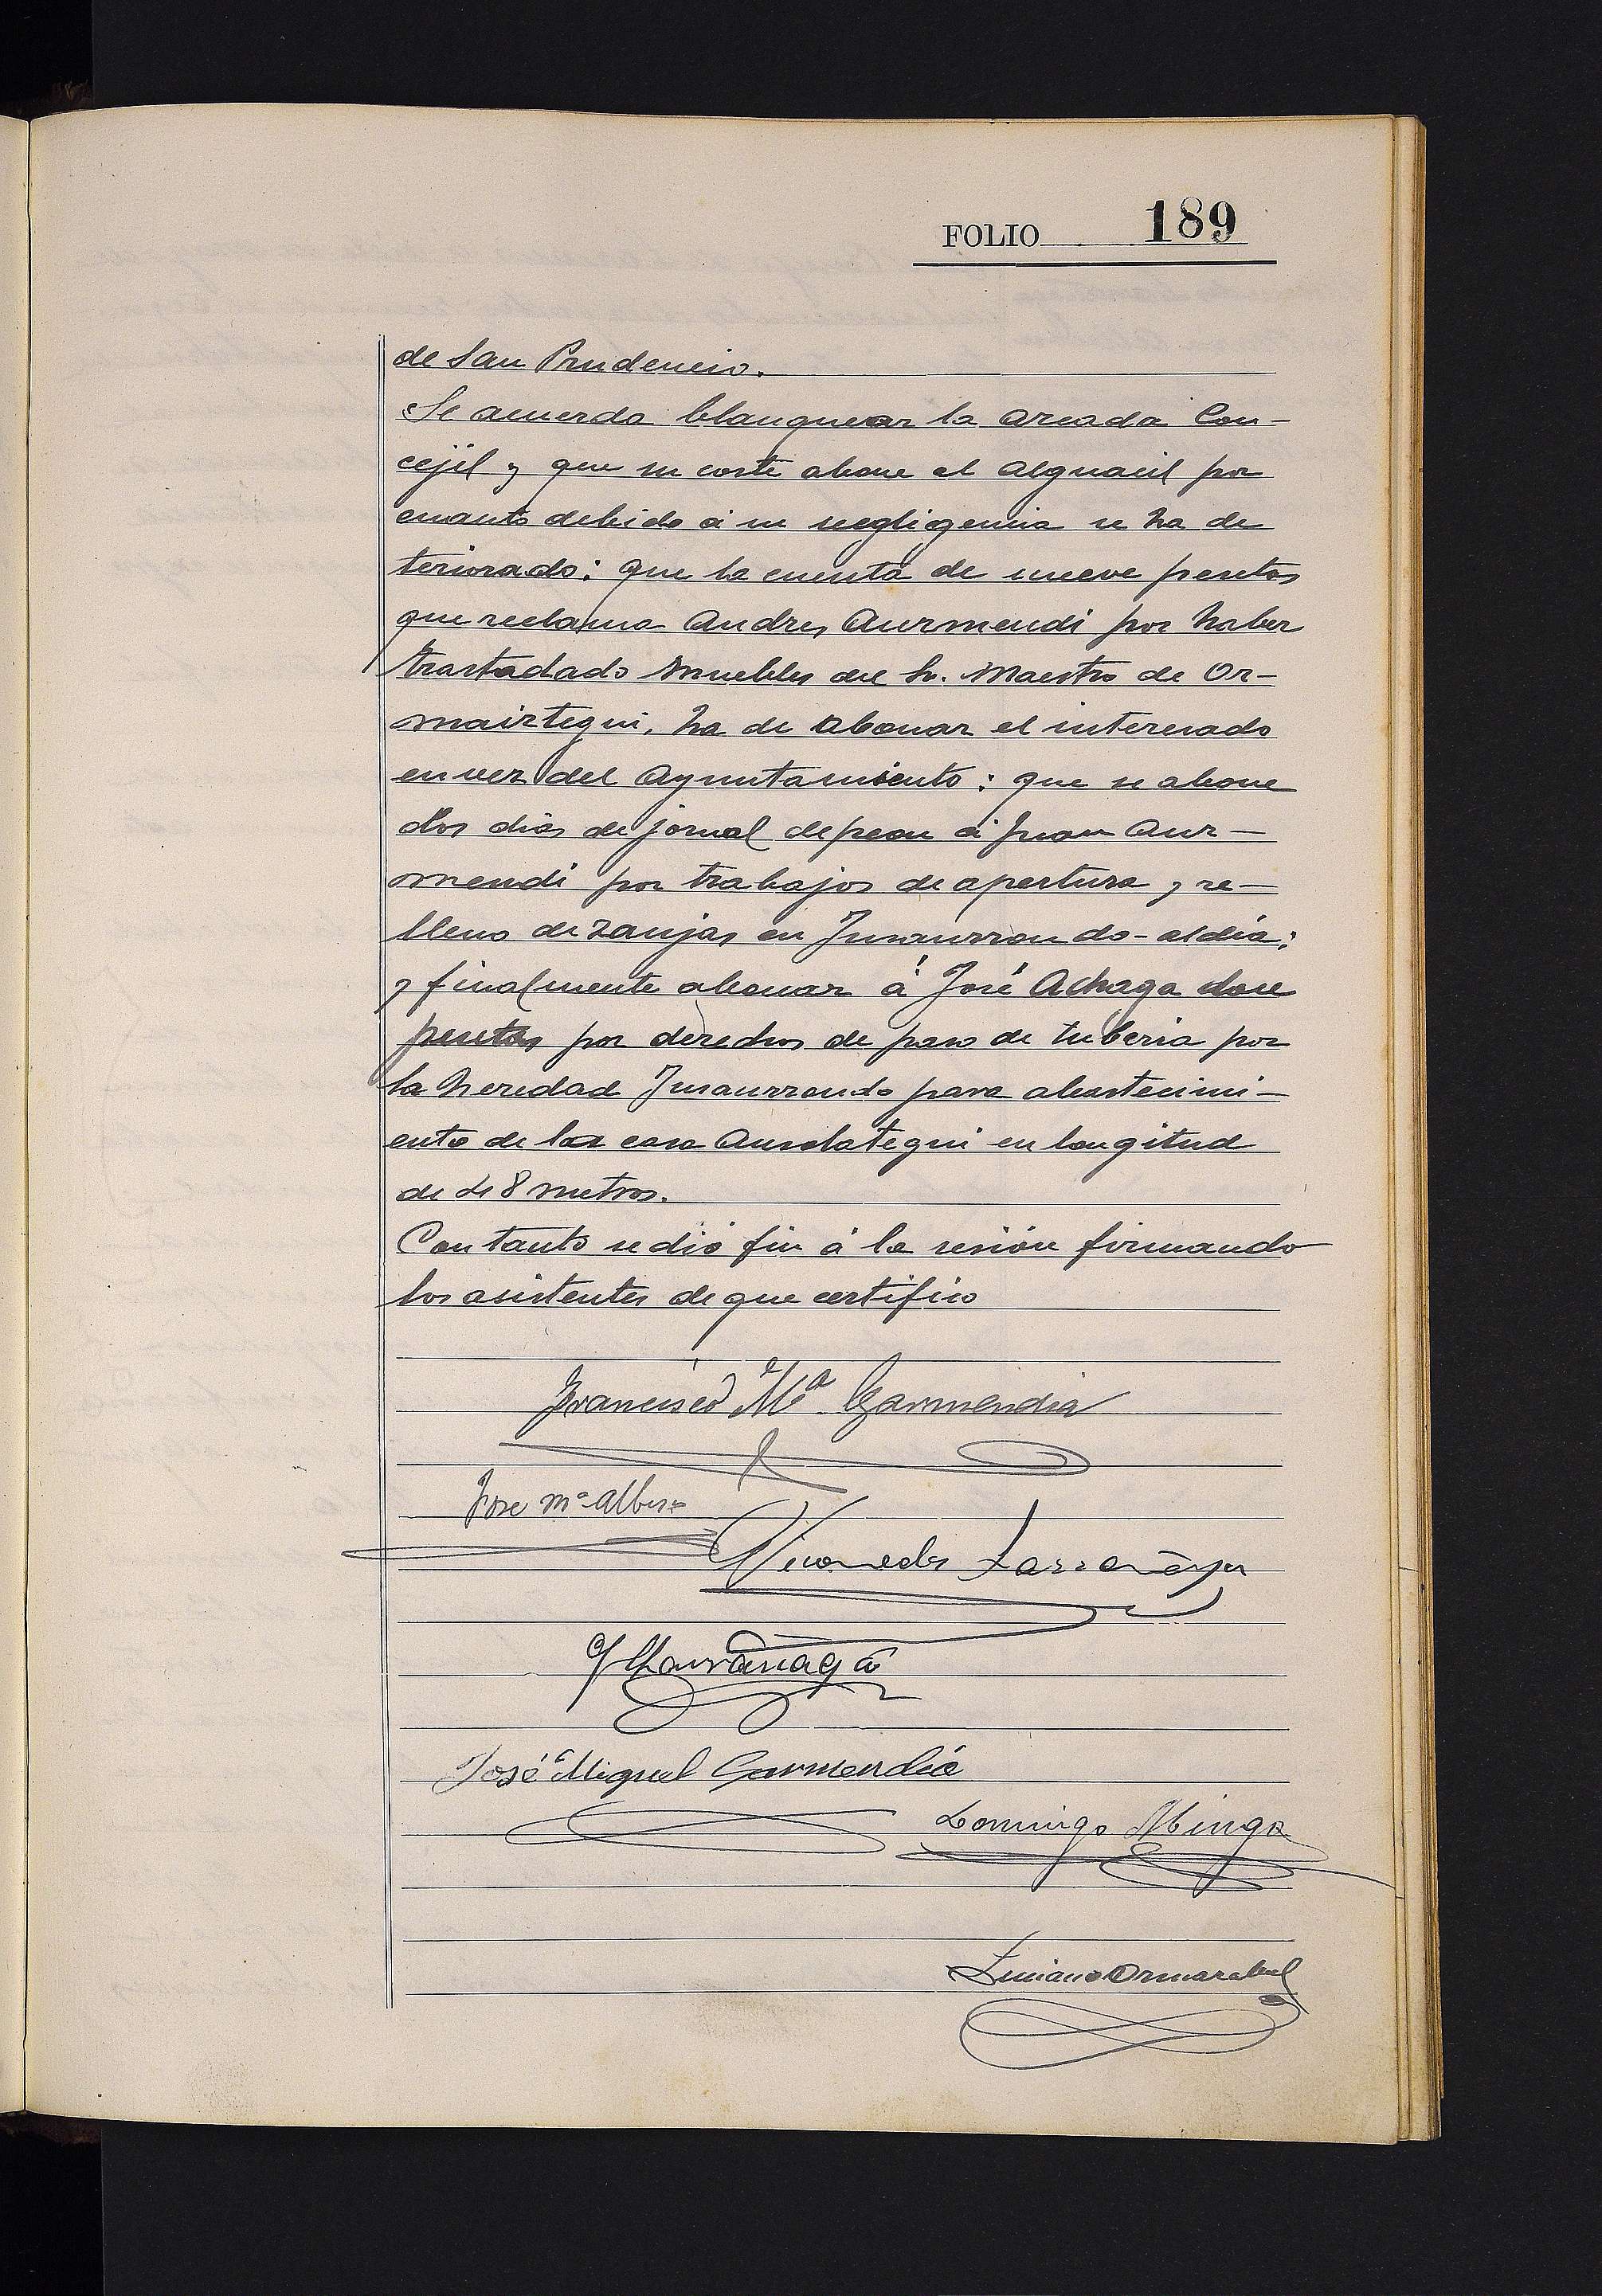 FOLIO 189
de San Prudencio.
Se acuerda blanquear la arcada Con-
cejil y que su coste abone el alguacil por
cuanto debido á su negligencia se ha de
teriorado: que la cuenta de nueve pesetas
que reclama Andres Aurmendi por haber
trastadado muebles del Sr. Maestro de Or-
maiztegui, ha de abonar el interesado
en vez del Ayuntamiento: que se abone
dos dias de jornal de peon á Juan Aur-
mendi por trabajos de apertura y re-
lleno de zanjas en Insaurrondo-aldia;
y finalmente abonar á José Achaga doce
pesetas por derechos de paso de tuberia por
la heredad Insaurrondo para abastecimi-
ento de la casa Ausolategui en longitud
de 48 metros.
Con tanto se dió fin á la sesión firmando
los asistentes de que certifico
Francisco Mª Garmendia
Jose Mª Albisu
Nicomedes Larrañaga
Larrañaga
José Miguel Garmendia
Domingo
Luciano Ormazabal